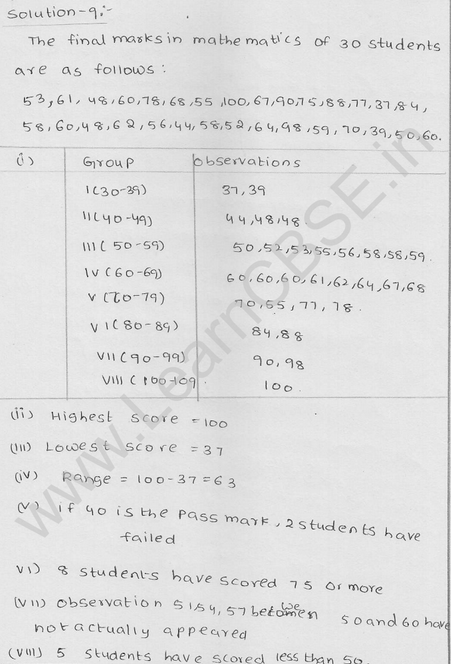 Solution-9:-
The final marks in mathematics of 30 students
are as follows:
53,61, 48,60,78,68,55,100,67,90,75,88,77,37,84,
58,60,48,62,56,44,58,52,64,98,59,70,39,50,60.
(i) Group Observations
I(30-39) 37,39
II(40-49) 44,48,48.
III(50-59) 50,52,53,55,56,58,58,59.
IV(60-69) 60,60,60,61,62,64,67,68
V(70-79) 70,55,77,78.
VI(80-89) 84,88
VII(90-99) 90,98
VIII(100-109. 100
(ii) Highest Score =100
(III) Lowest score =37
(iv) Range = 100-37=63
(V) if 40 is the pass mark, 2 students have
failed
VI) 8 students have scored 75 or more
(VII) observation 51,54,57 between 50 and 60 have
not actually appeared
(VIII) 5 students have scored less than 50.
www.LearnCBSE.in